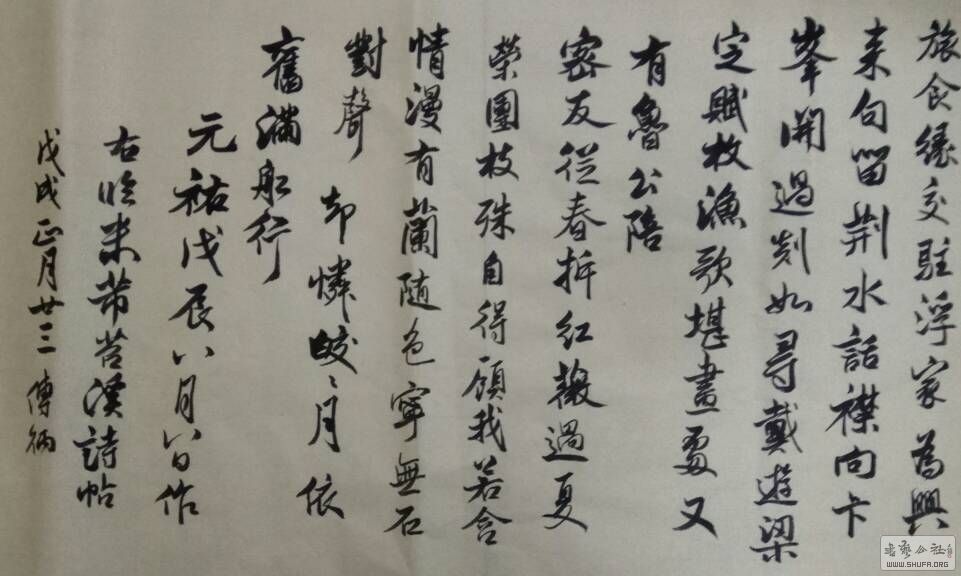 旅食緣交駐浮家為興
来句留荆水話襟向卞
峯開過剡如尋戴遊梁
定賦枚漁歌堪畫處又
有魯公陪
密友從春拆紅薇過夏
榮團枝殊自得顧我若含
情漫有蘭随色寧無石
對聲
却憐皎〻月依
舊滿船行
元祐戊辰八月八日作
右临米芾苕溪詩帖
戊戌正月廿三傅炳
書藝公社
WWW.SHUFA.ORG